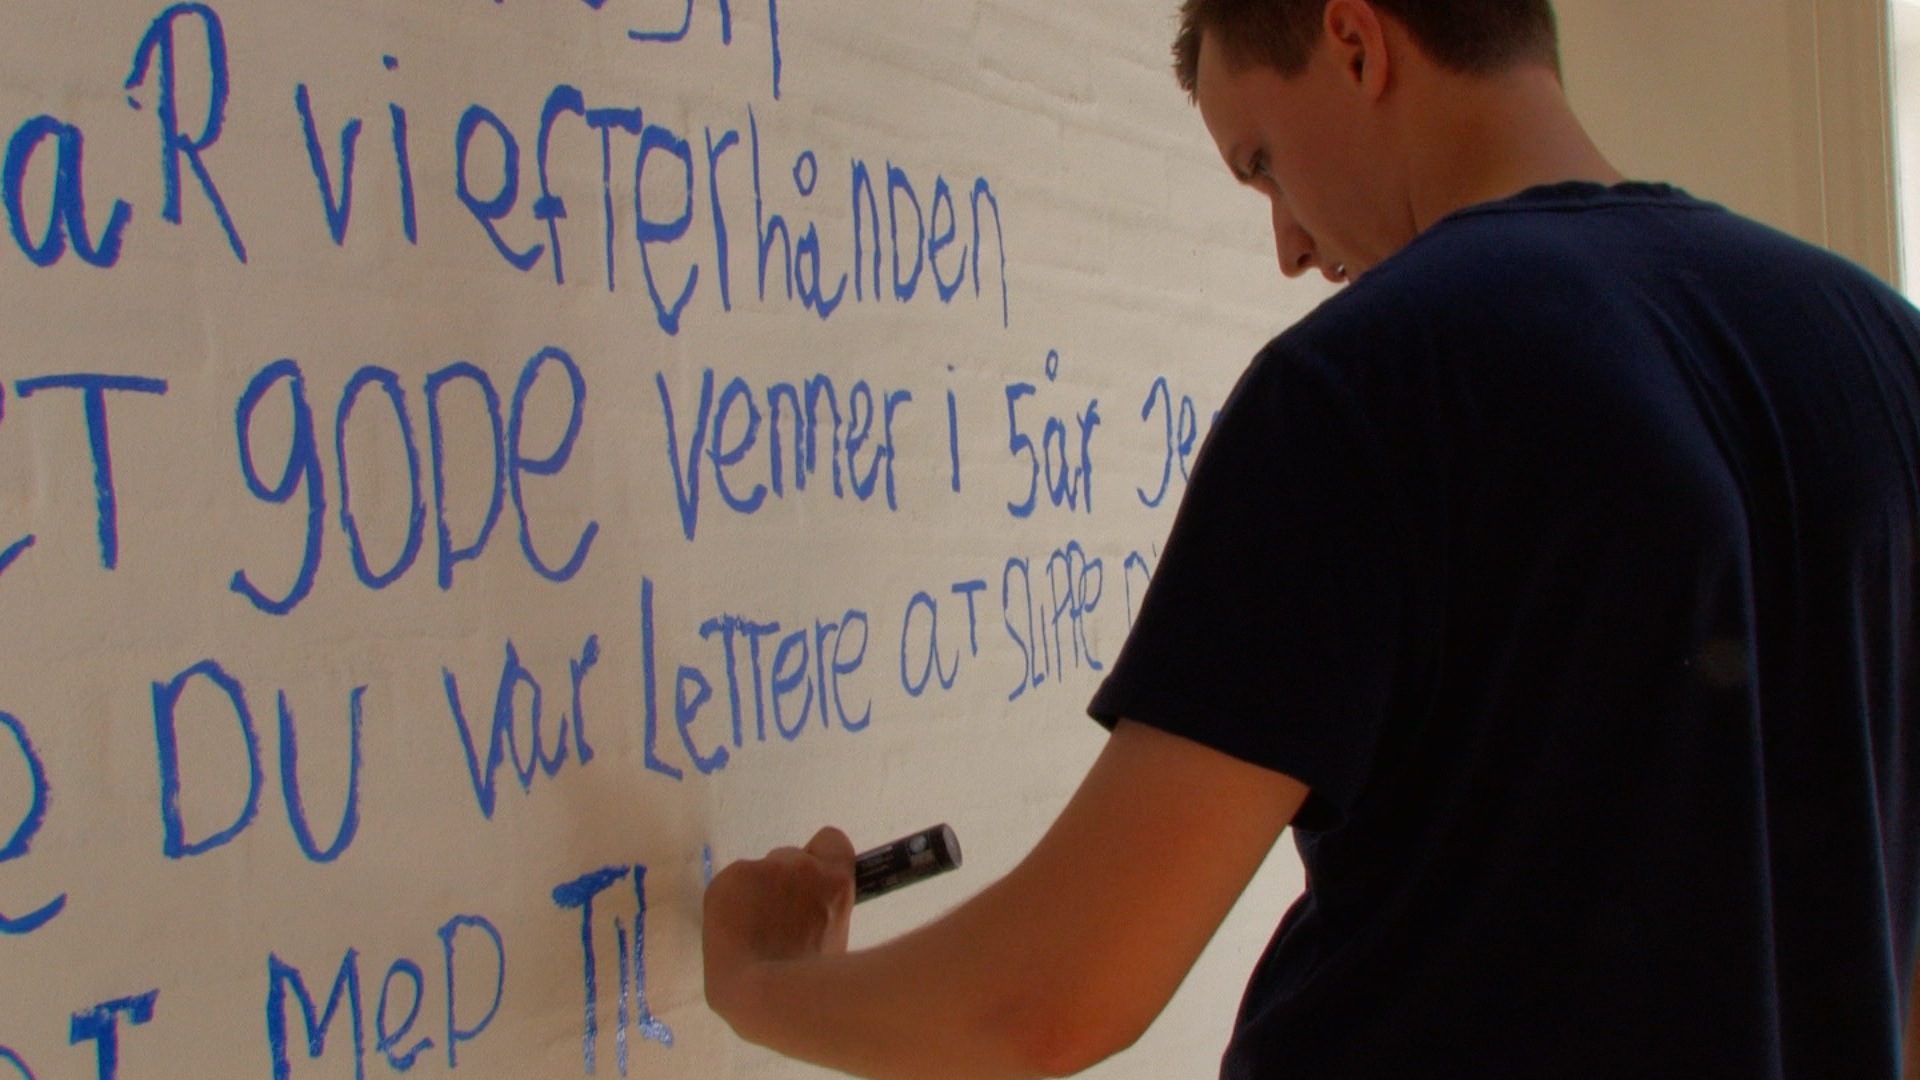 aR vi efTerhånDen
gODe venner i 5år Je
DU var LeTTere aT SLiPPe
MeD TiL